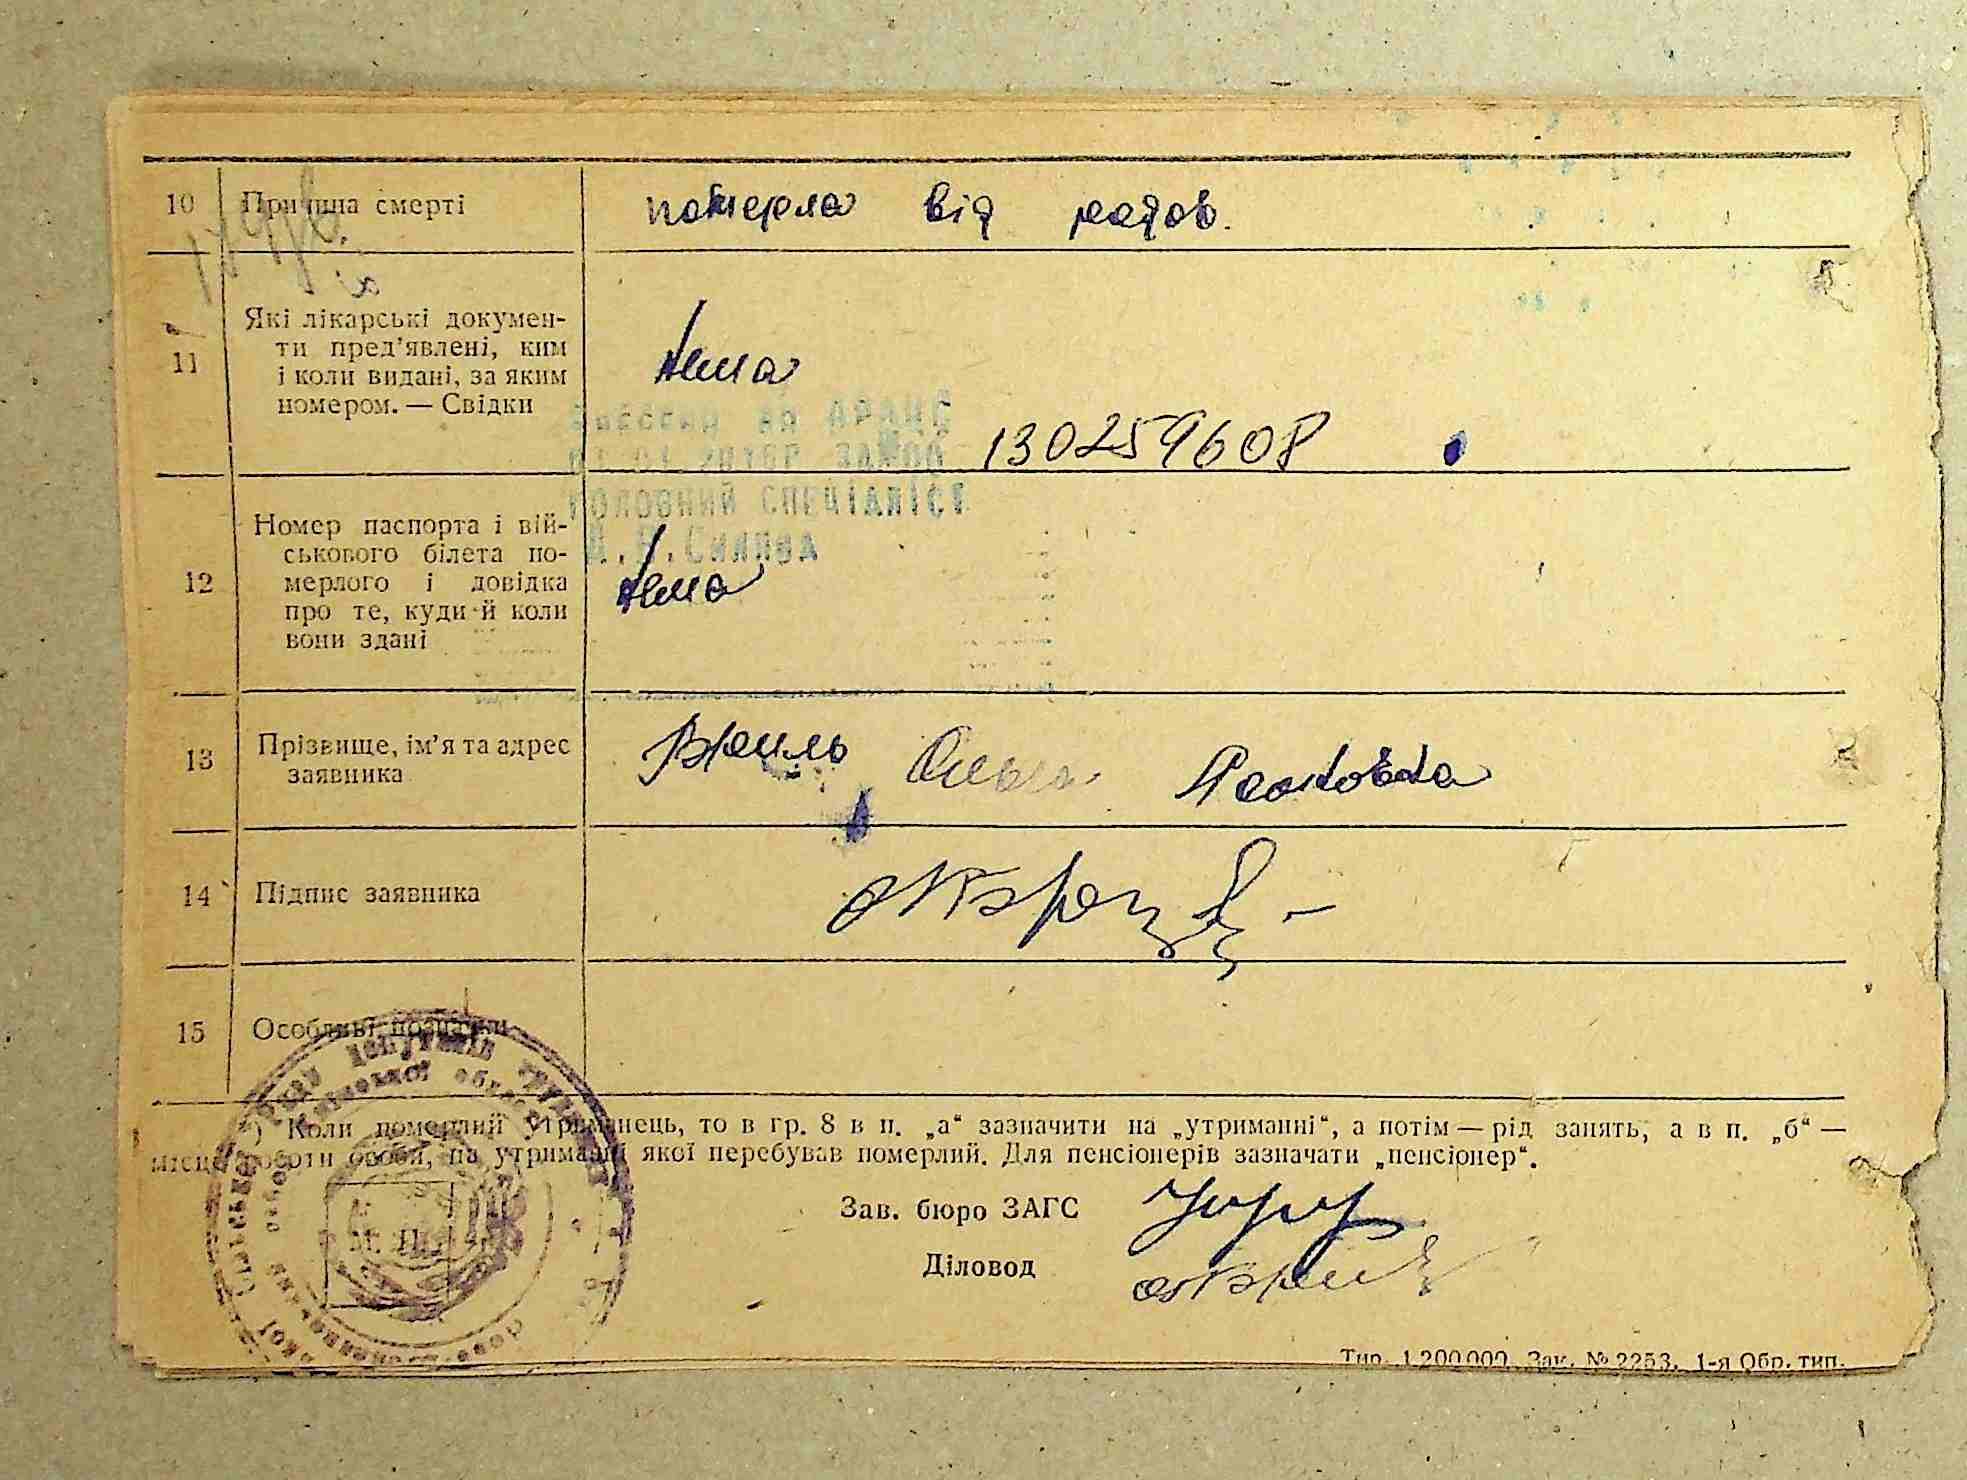 10 Причина смерті
померла від родов.
11 Які лікарські докумен-
ти пред'явлені, ким
і коли видані, за яким
номером. — Свідки
Нема
130259608
ГОЛОВНИЙ СПЕЦІАЛІСТ
12 Номер паспорта і вій-
ськового білета по-
мерлого і довідка
про те, куди й коли
вони здані
Нема
13 Прізвище, ім'я та адрес
заявника
Ольга
14 Підпис заявника
15 Особливі позначки
) Коли померлий утриманець, то в гр. 8 в п. „а“ зазначити на „утриманні“, а потім — рід занять, а в п. „б“ —
місце роботи особи, на утриманні якої перебував померлий. Для пенсіонерів зазначати „пенсіонер“.
М. П.
Зав. бюро ЗАГС
Діловод
Тир. 1.200.000. Зак. № 2253. 1-я Обр. тип.